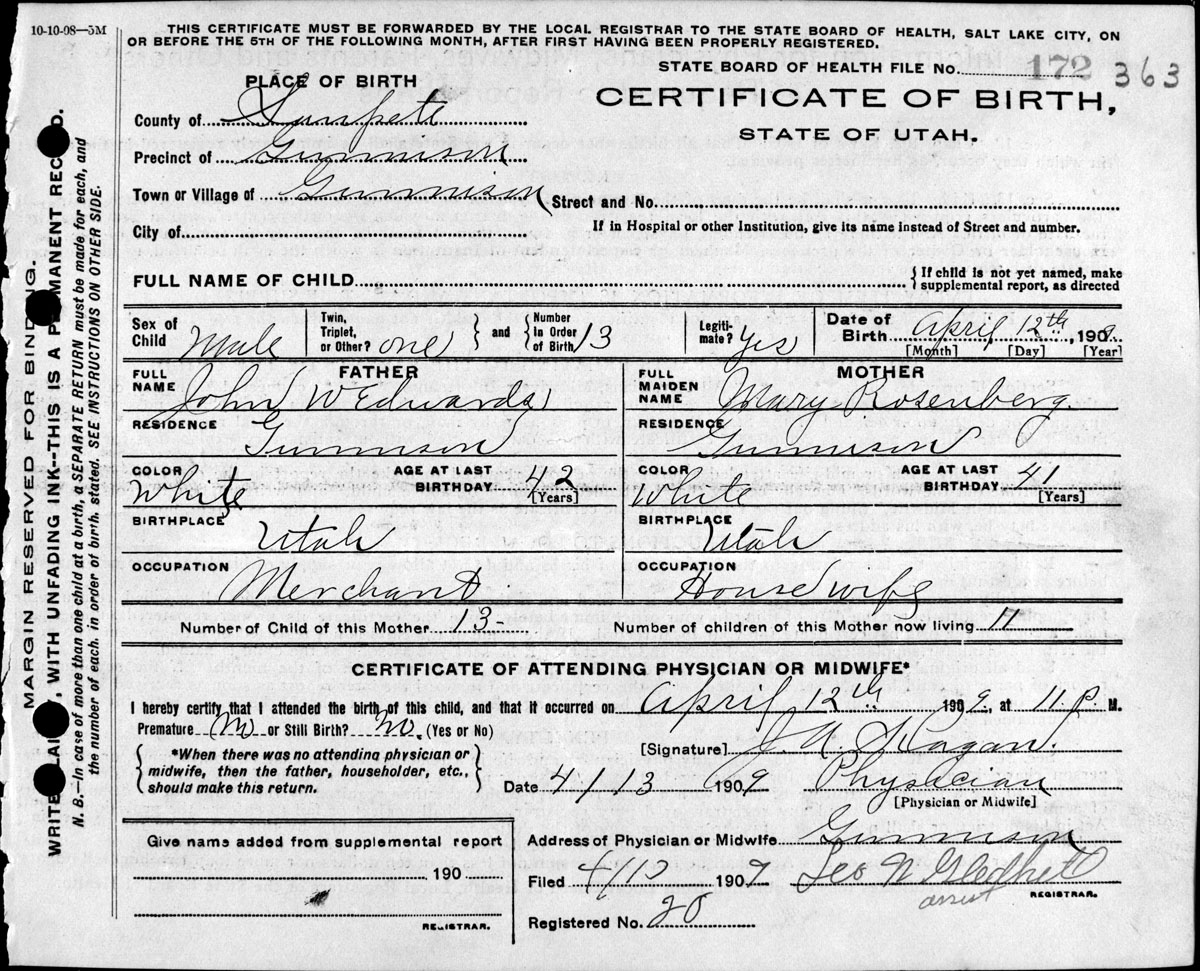 10-10-08—5M
THIS CERTIFICATE MUST BE FORWARDED BY THE LOCAL REGISTRAR TO THE STATE BOARD OF HEALTH, SALT LAKE CITY, ON
OR BEFORE THE 5TH OF THE FOLLOWING MONTH, AFTER FIRST HAVING BEEN PROPERLY REGISTERED.
STATE BOARD OF HEALTH FILE No. 172 363
PLACE OF BIRTH
CERTIFICATE OF BIRTH,
STATE OF UTAH.
County of Sanpete
Precinct of Gunnison
Town or Village of Gunnison Street and No.
City of If in Hospital or other Institution, give its name instead of Street and number.
FULL NAME OF CHILD { If child is not yet named, make
supplemental report, as directed
Sex of Child Male Twin, Triplet, or Other? one } and { Number in Order of Birth 13 Legiti-mate? Yes Date of Birth April 12th, 190
[Month] [Day] [Year]
FATHER MOTHER
FULL NAME John W Edwards FULL MAIDEN NAME Mary Rosenberg.
RESIDENCE Gunnison RESIDENCE Gunnison
COLOR White AGE AT LAST BIRTHDAY 42 [Years] COLOR White AGE AT LAST BIRTHDAY 41 [Years]
BIRTHPLACE Utah BIRTHPLACE Utah
OCCUPATION Merchant OCCUPATION Housewife
Number of Child of this Mother 13- Number of children of this Mother now living 11
CERTIFICATE OF ATTENDING PHYSICIAN OR MIDWIFE*
I hereby certify that I attended the birth of this child, and that it occurred on April 12th 1909, at 11. P. M.
Premature No or Still Birth? No. (Yes or No)
{ *When there was no attending physician or
midwife, then the father, householder, etc.,
should make this return. }
[Signature] Hagan.
Date 4/13 1909 Physician
[Physician or Midwife]
Give name added from supplemental report
190
REGISTRAR.
Address of Physician or Midwife Gunnison
Filed 1909 Leo N Gledhill
assist REGISTRAR.
Registered No. 20
MARGIN RESERVED FOR BINDING.
WRITE PLAINLY, WITH UNFADING INK—THIS IS A PERMANENT RECORD.
N. B.—In case of more than one child at a birth, a SEPARATE RETURN must be made for each, and
the number of each, in order of birth, stated. SEE INSTRUCTIONS ON OTHER SIDE.